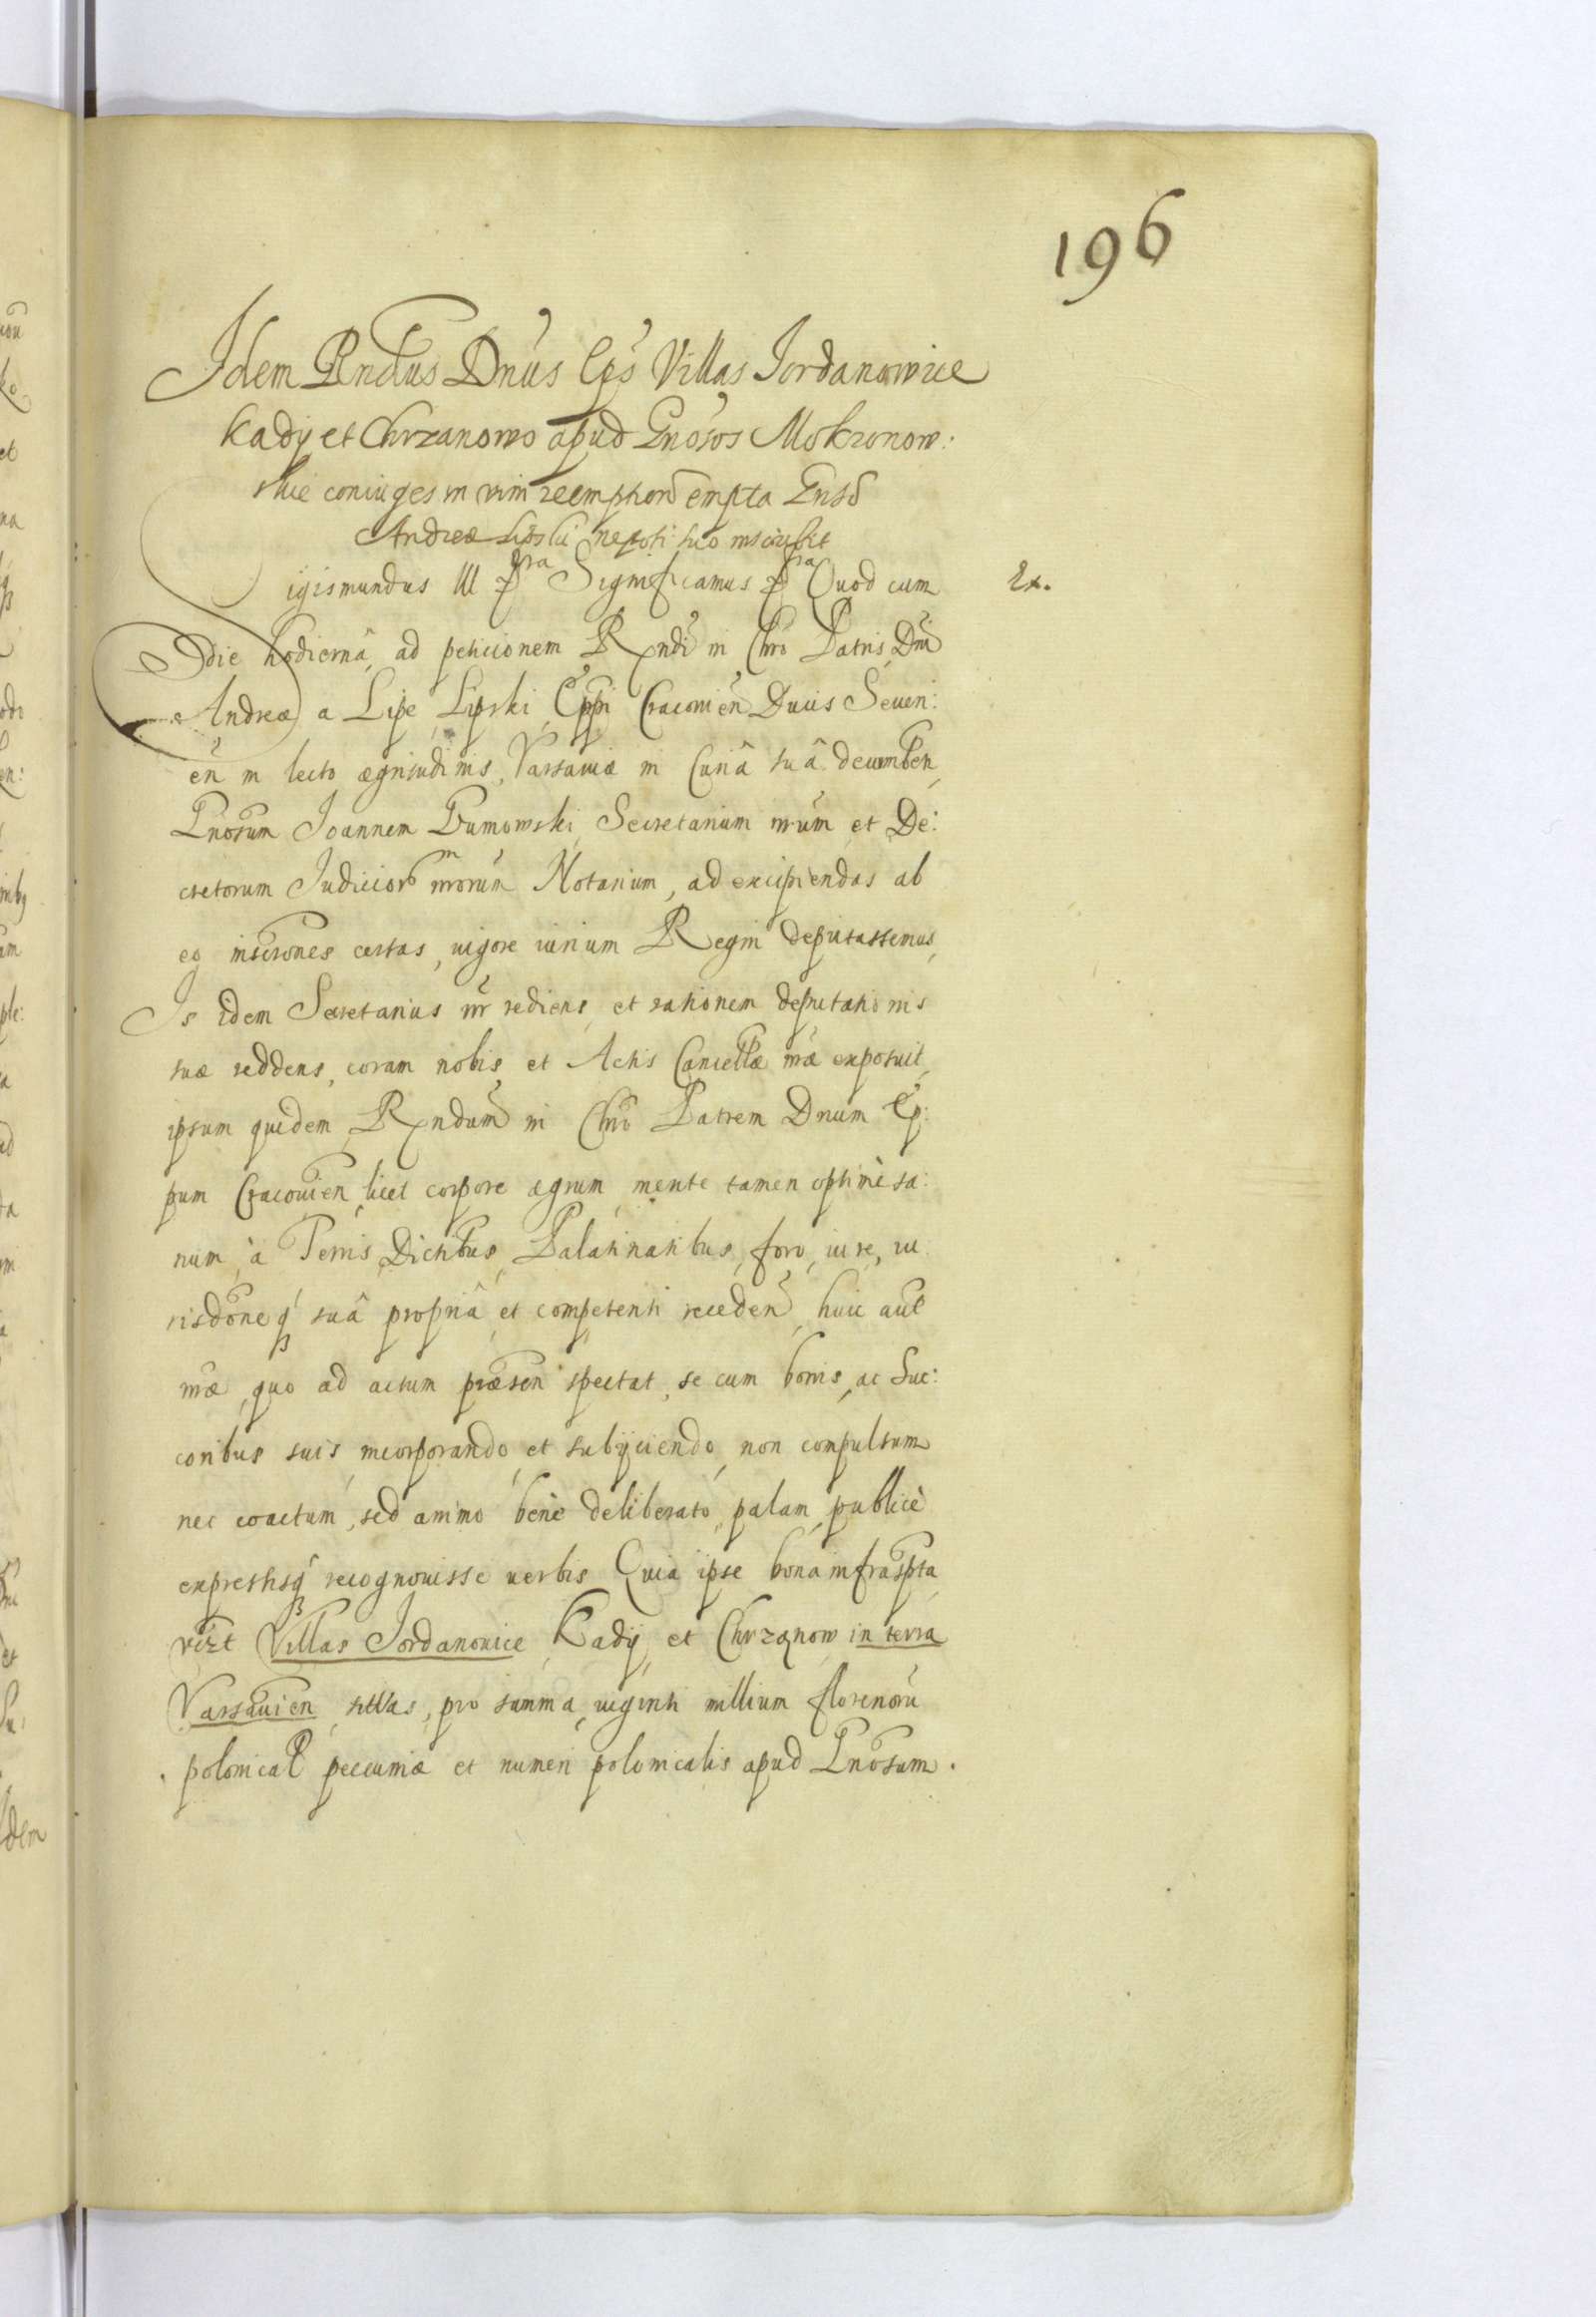 196
Idem Rndus Dnus Eps Villas Jordanowice
Kady et Chrzanowo apud Gnosos Mokronow:
skie coniuges in vim reemption empta Gnso
Andreæ Lipski nepoti suo inscribit
Sigismundus III &ra Significamus &ra Quod cum
Ex.
die hodiernâ, ad peticionem Rndi in Chro Patris Dni
Andreæ a Lipe Lipski Eppi Cracouien Ducis Seueri:
en in lecto ægritudinis, Varsauiæ in Curiâ suâ decumben,
Gnosum Joannem Gumowski Secretarium nrum et De:
cretorum Judicior nrorum Notarium, ad excipiendas ab
eo inscrones certas, uigore iurium Regni deputassemus,
Is idem Secretarius nr rediens, et rationem deputationis
suæ reddens, coram nobis et Actis Cancellæ nræ exposuit,
ipsum quidem Rndum in Chro Patrem Dnum Ep:
pum Cracouien, licet corpore ægrum, mente tamen optimè sa:
num, à Terris, Dictibus, Palatinatibus, foro, iure, iu
risdoneq suâ propriâ et competenti receden, huic aut
nræ, quo ad actum præsen spectat, se cum bonis, ac Suc:
coribus suis incorporando et subyciendo, non compulsum
nec coactum, sed animo benè deliberato, palam, publicè
expressisq recognouisse uerbis Quia ipse bona infraspta
vizt Villas Jordanouice Kady, et Chrzanow in terra
Varsauien sittas, pro summa uiginti millium florenoru
polonical pecuniæ et numeri polonicalis apud Gnosum.